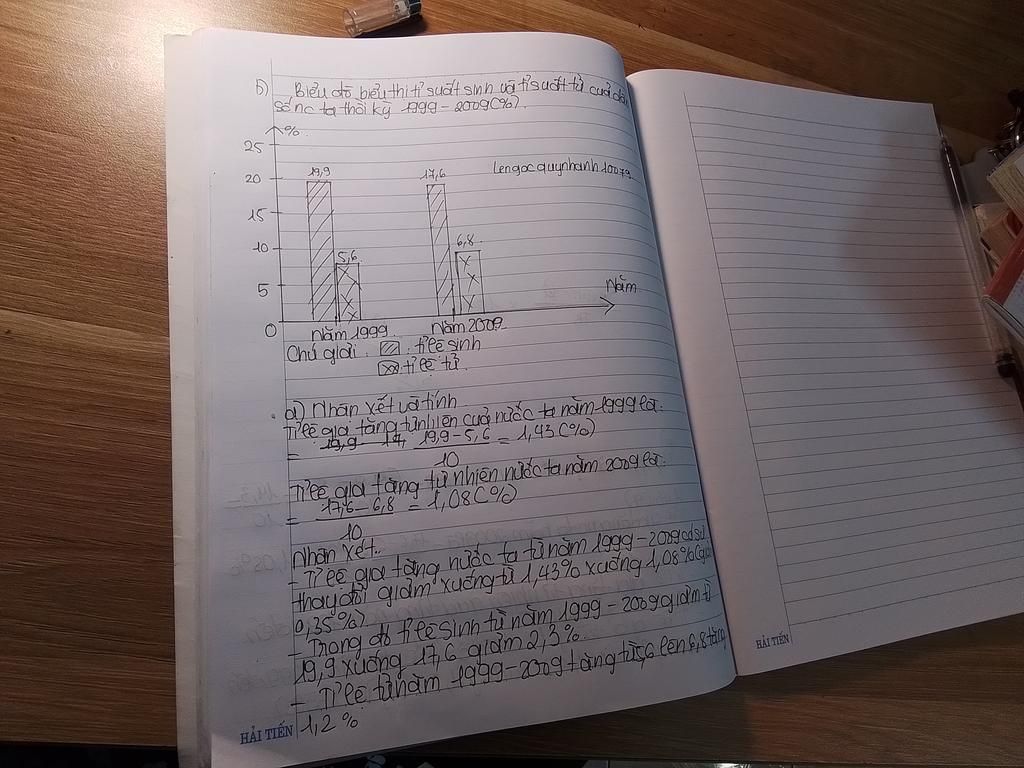 b) Biểu đồ biểu thị tỉ suất sinh và tỉ suất tử của dân
số nc ta thời kỳ 1999 - 2009 (%).
%
25
20
15
10
5
0
19,9
5,6
17,6
6,8
lengocquynhanh10079
Năm
Năm 1999
Năm 2009
Chú giải : : tỉ lệ sinh
: tỉ lệ tử
a) Nhận xét và tính
Tỉ lệ gia tăng tự nhiên của nước ta năm 1999 là:
= 19,9 - 5,6 = 1,43 (%)
10
Tỉ lệ gia tăng tự nhiên nước ta năm 2009 là:
= 17,6 - 6,8 = 1,08 (%)
10
Nhận xét.
- Tỉ lệ gia tăng nước ta từ năm 1999 - 2009 có sự
thay đổi giảm xuống từ 1,43% xuống 1,08%
0,35%)
- Trong đó tỉ lệ sinh từ năm 1999 - 2009 giảm từ
19,9 xuống 17,6 giảm 2,3%
- Tỉ lệ tử năm 1999 - 2009 tăng từ 5,6 lên 6,8 tăng
1,2%
HẢI TIẾN
HẢI TIẾN